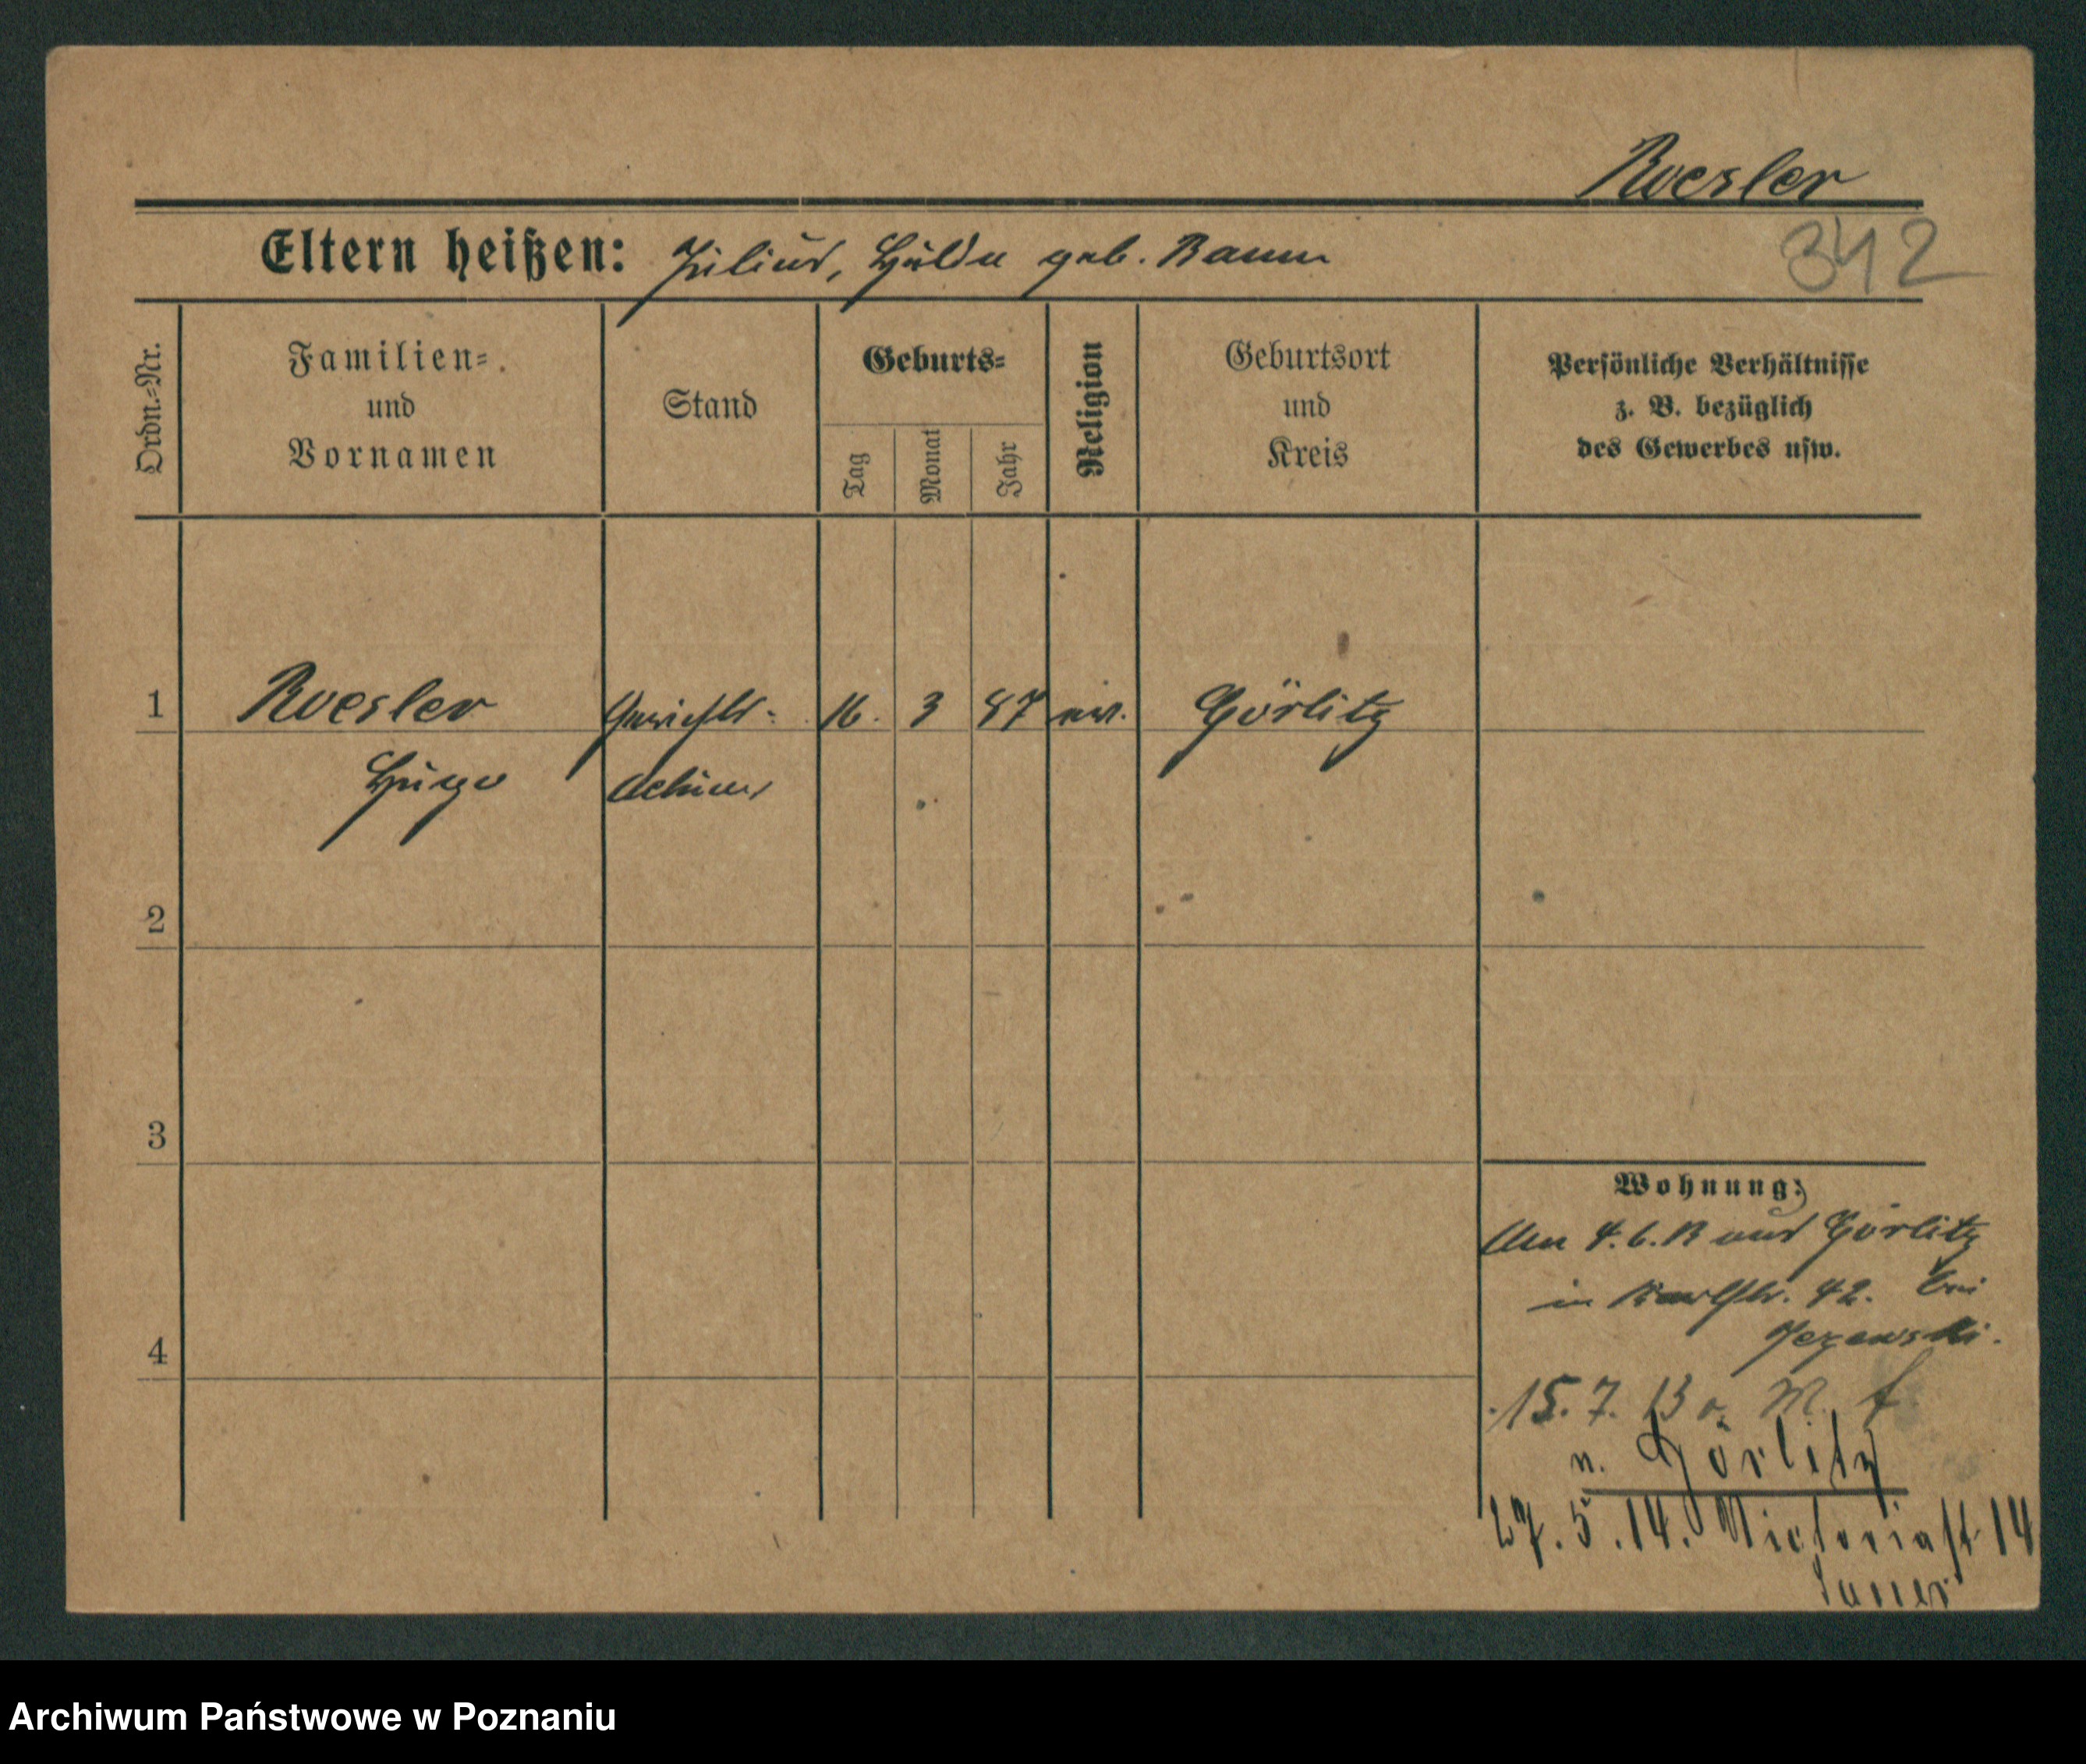 Roesler
342
Eltern heißen: Julius, Hulda geb. Baum
Ordn.=Nr.
Familien=
und
Vornamen
Stand
Geburts=
Tag
Monat
Jahr
Religion
Geburtsort
und
Kreis
Persönliche Verhältnisse
z. B. bezüglich
des Gewerbes usw.
1 Roesler Gerichts- 16. 3 87 ev. Görlitz
Hugo
2
3
4
Wohnung:
aus Görlitz
in 42. bei
15. 7. 13 v.
n. Görlitz
27. 5. 14. Victoriast 14
Archiwum Państwowe w Poznaniu